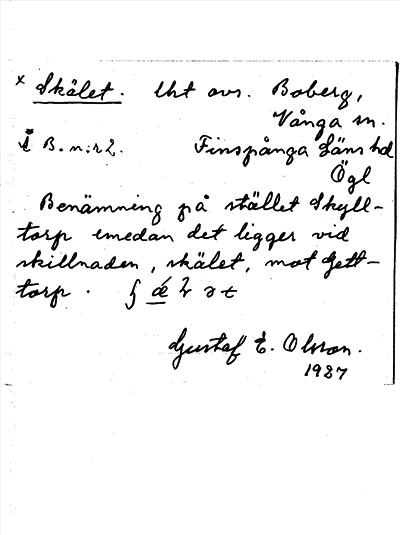 × Skälet. Uht avs. Boberg,
Vånga sn.
i B. n:r 2. Finspånga Läns hd
Ögl
Benämning på stället Skyll-
torp emedan det ligger vid
skillnaden, skälet, mot Gett-
torp.
Gustaf E. Olsson.
1927